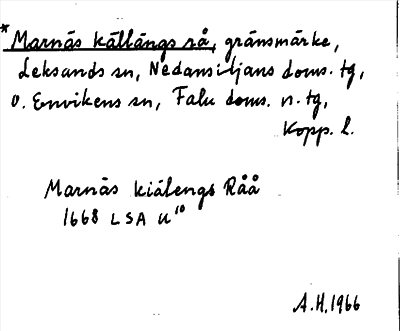 * Marnäs källängs rå, gränsmärke,
Leksands sn, Nedansiljans doms. tg,
o. Envikens sn, Falu doms. n. tg,
Kopp. l.
Marnäs kiälengs Råå
1668 LSA U¹⁰
A.H. 1966